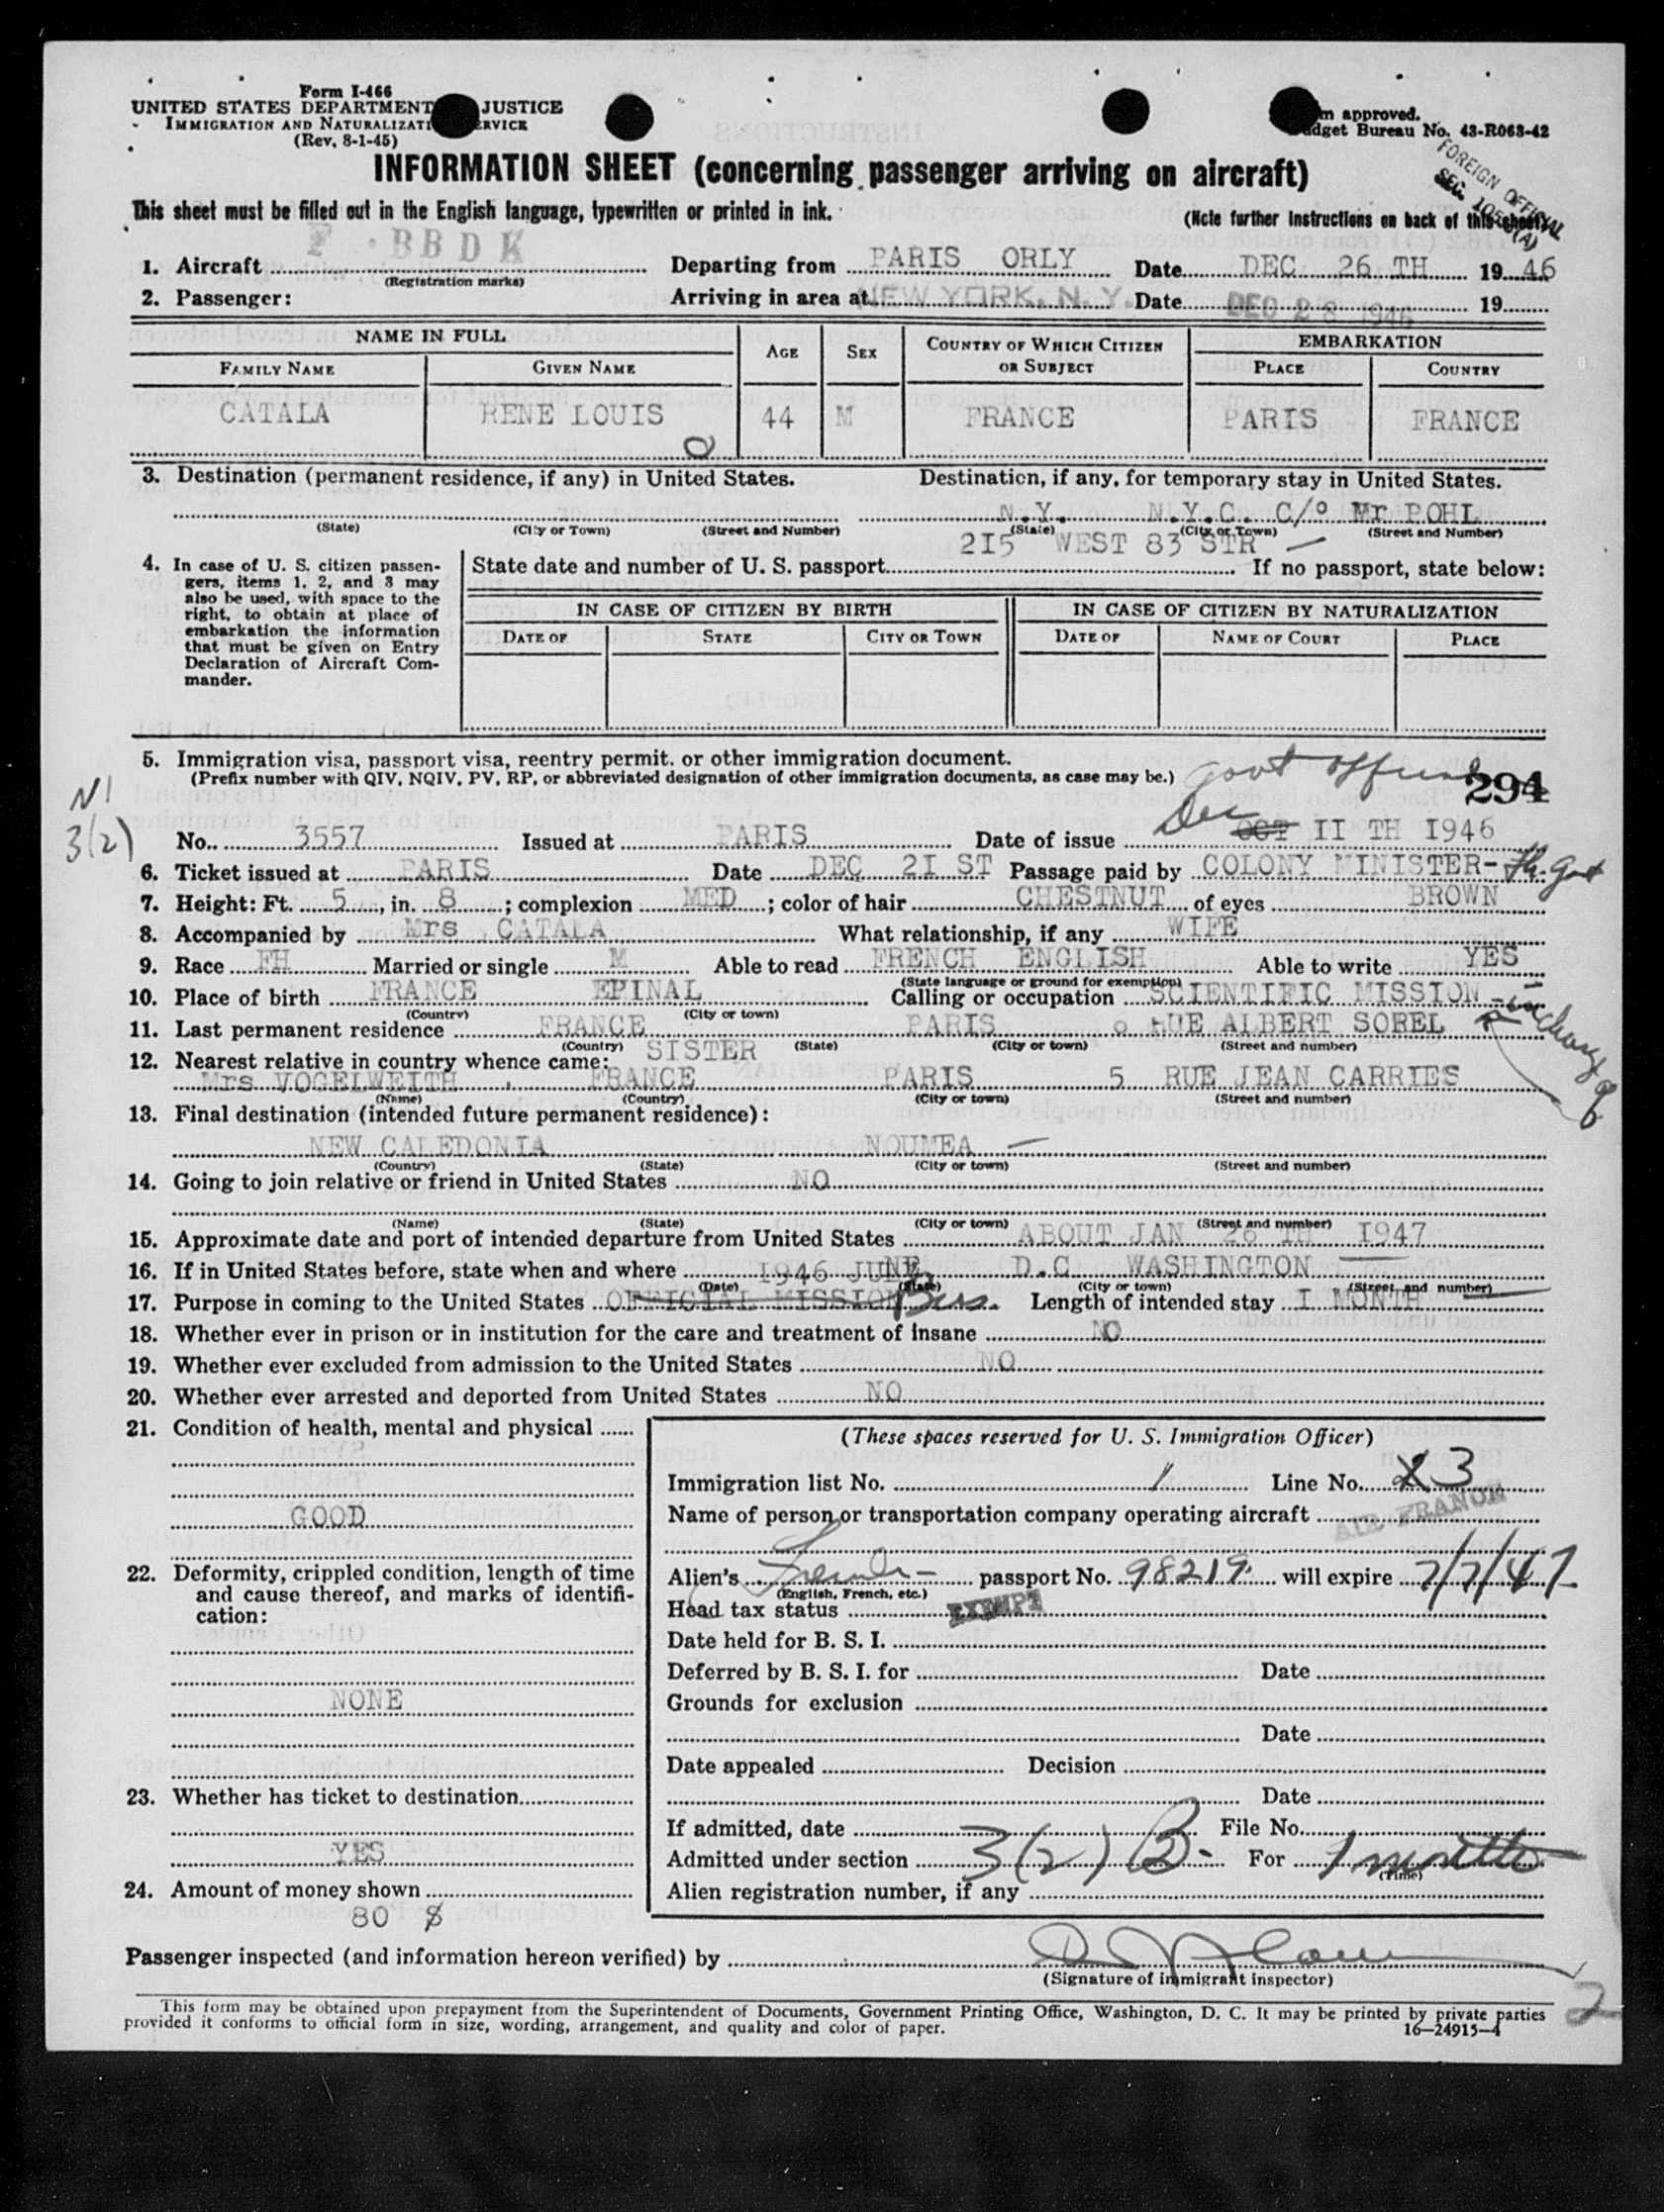 Form I-466
UNITED STATES DEPARTMENT JUSTICE
IMMIGRATION AND NATURALIZATI ERVICE
(Rev. 8-1-45)
m approved.
dget Bureau No. 43-R063-42
FOREIGN OFFICIAL
SEC. (A)
INFORMATION SHEET (concerning passenger arriving on aircraft)
This sheet must be filled out in the English language, typewritten or printed in ink.
(Note further instructions on back of this sheet)
1. Aircraft F · BBDK Departing from PARIS ORLY Date DEC 26 TH 1946
(Registration marks)
2. Passenger: Arriving in area at NEW YORK, N. Y. Date DEC 28 1946 19
NAME IN FULL AGE SEX COUNTRY OF WHICH CITIZEN OR SUBJECT EMBARKATION
FAMILY NAME GIVEN NAME PLACE COUNTRY
CATALA RENE LOUIS 44 M FRANCE PARIS FRANCE
3. Destination (permanent residence, if any) in United States. Destination, if any, for temporary stay in United States.
N.Y. N.Y.C. C/o Mr POHL
(State) (City or Town) (Street and Number) (State) (City or Town) (Street and Number)
2I5 WEST 83 STR —
4. In case of U. S. citizen passengers, items 1, 2, and 3 may also be used, with space to the right, to obtain at place of embarkation the information that must be given on Entry Declaration of Aircraft Commander.
State date and number of U. S. passport If no passport, state below:
IN CASE OF CITIZEN BY BIRTH IN CASE OF CITIZEN BY NATURALIZATION
DATE OF STATE CITY OR TOWN DATE OF NAME OF COURT PLACE
5. Immigration visa, passport visa, reentry permit, or other immigration document.
(Prefix number with QIV, NQIV, PV, RP, or abbreviated designation of other immigration documents, as case may be.)
Govt 294
NI
3(2)
Dec
No. 3557 Issued at PARIS Date of issue OCT II TH I946
6. Ticket issued at PARIS Date DEC 2I ST Passage paid by COLONY MINISTER- Fr. Govt
7. Height: Ft. 5, in. 8; complexion MED; color of hair CHESTNUT of eyes BROWN
8. Accompanied by Mrs CATALA What relationship, if any WIFE
9. Race FH Married or single M Able to read FRENCH ENGLISH Able to write YES
(State language or ground for exemption)
10. Place of birth FRANCE EPINAL Calling or occupation SCIENTIFIC MISSION - in charge of
(Country) (City or town)
11. Last permanent residence FRANCE PARIS RUE ALBERT SOREL
(Country) (State) (City or town) (Street and number)
12. Nearest relative in country whence came: SISTER
Mrs VOGELWEITH, FRANCE PARIS 5 RUE JEAN CARRIES
(Name) (Country) (City or town) (Street and number)
13. Final destination (intended future permanent residence):
NEW CALEDONIA NOUMEA —
(Country) (State) (City or town) (Street and number)
14. Going to join relative or friend in United States NO
(Name) (State) (City or town) (Street and number)
15. Approximate date and port of intended departure from United States ABOUT JAN 26 TH I947
16. If in United States before, state when and where I946 JUNE D.C WASHINGTON
(Date) (State) (City or town) (Street and number)
17. Purpose in coming to the United States OFFICIAL MISSION Bus. Length of intended stay I MONTH
18. Whether ever in prison or in institution for the care and treatment of insane NO
19. Whether ever excluded from admission to the United States NO
20. Whether ever arrested and deported from United States NO
21. Condition of health, mental and physical
GOOD
22. Deformity, crippled condition, length of time and cause thereof, and marks of identification:
NONE
23. Whether has ticket to destination
YES
24. Amount of money shown
80 $
(These spaces reserved for U. S. Immigration Officer)
Immigration list No. 1 Line No. 3
Name of person or transportation company operating aircraft AIR FRANCE
Alien's French passport No. 98219 will expire 7/7/47
(English, French, etc.)
Head tax status EXEMPT
Date held for B. S. I.
Deferred by B. S. I. for Date
Grounds for exclusion
Date
Date appealed Decision
Date
If admitted, date File No.
Admitted under section 3(2) B. For 1 month
(Time)
Alien registration number, if any
Passenger inspected (and information hereon verified) by
(Signature of immigrant inspector)
2
This form may be obtained upon prepayment from the Superintendent of Documents, Government Printing Office, Washington, D. C. It may be printed by private parties
provided it conforms to official form in size, wording, arrangement, and quality and color of paper. 16—24915-4